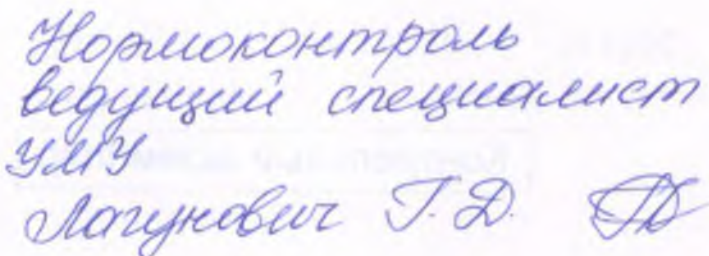 Нормоконтроль
ведущий специалист
УМУ
Лагунович Г. Д.